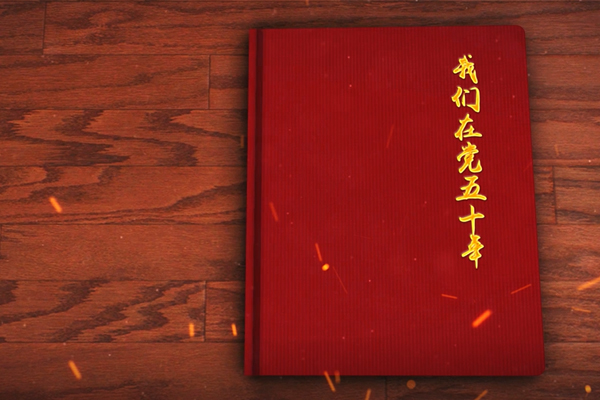 我们在党五十年